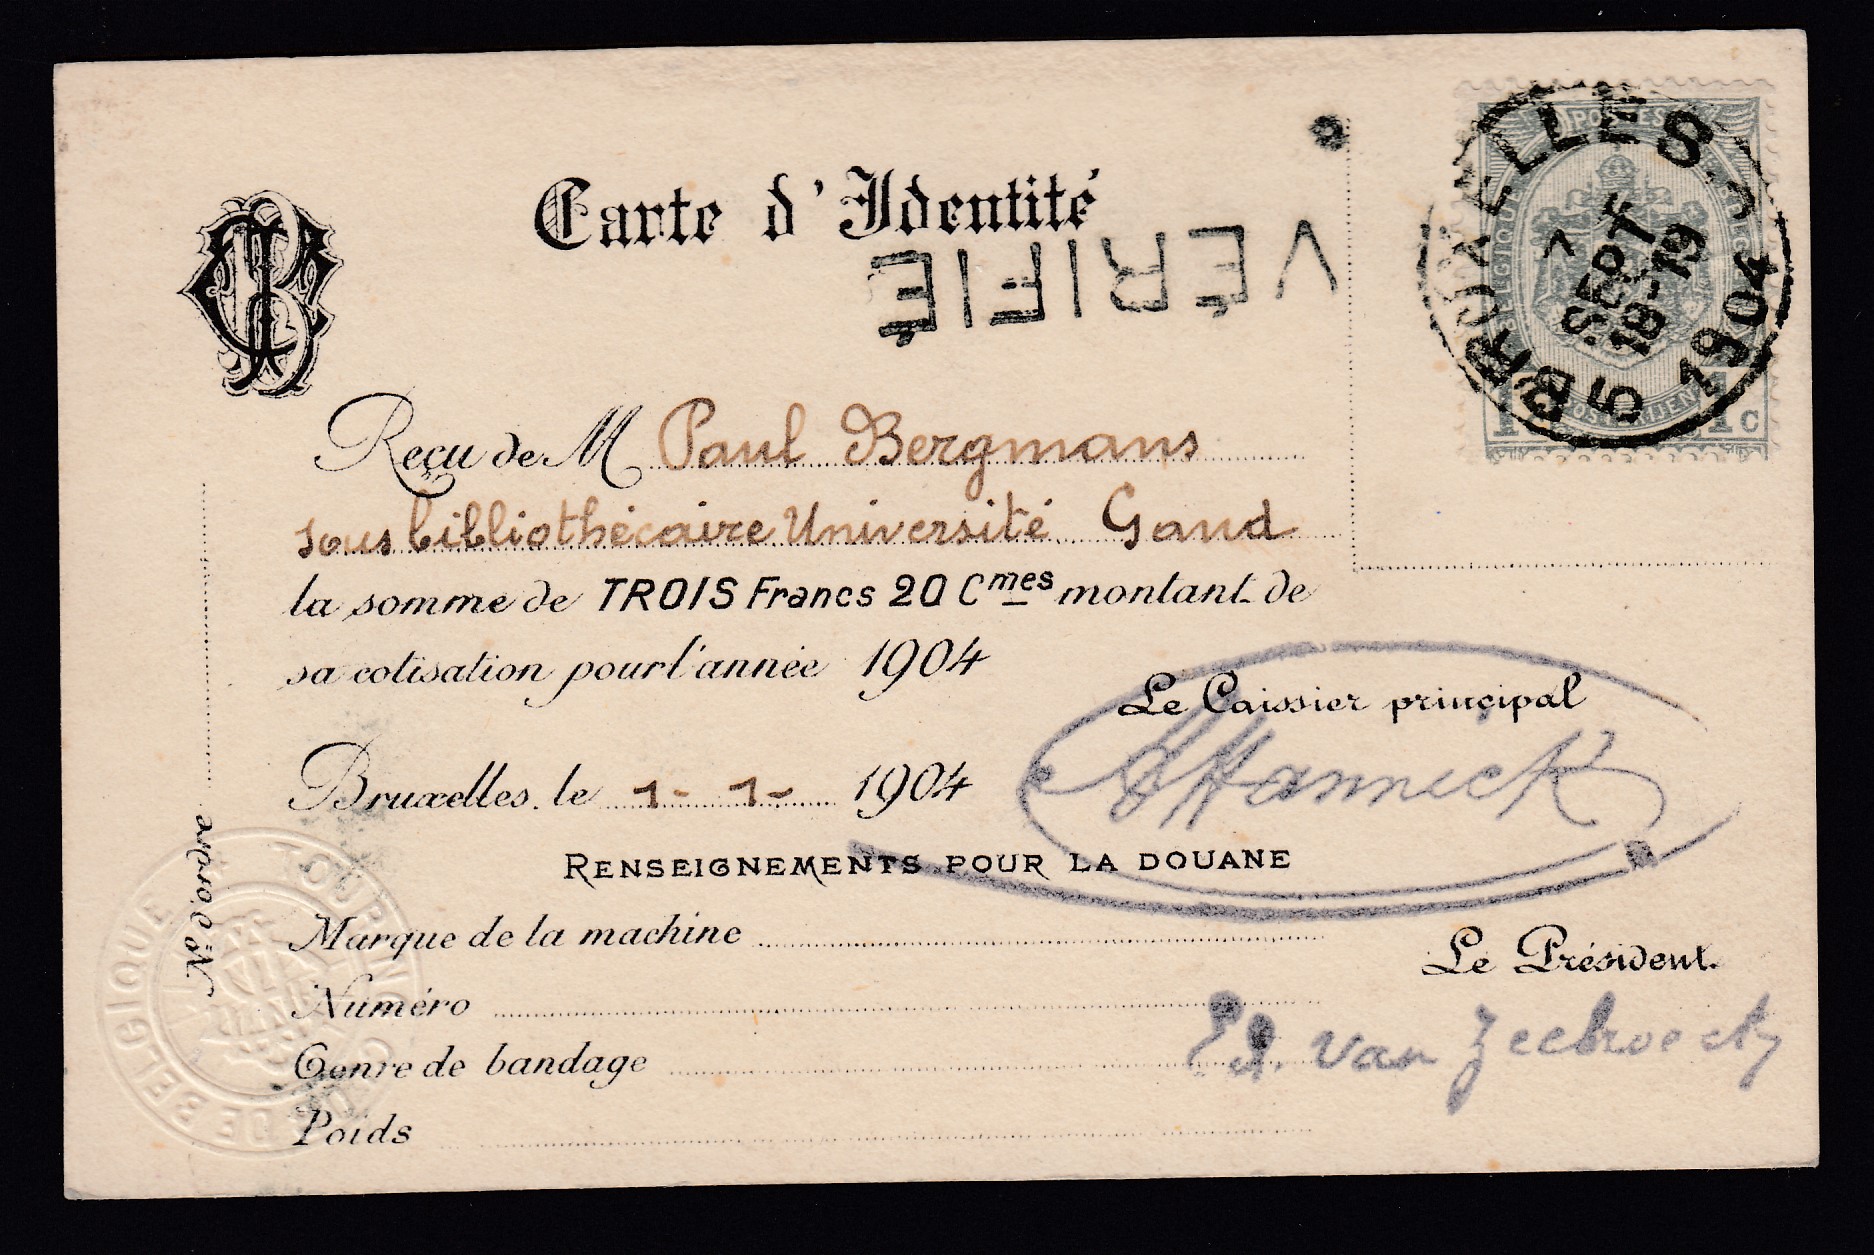 Carte d'Identité
VÉRIFIÉ
POSTES
BRUXELLES 5
7
SEPT
18-19
1904
1 1c
Reçu de M Paul Bergmans
sous bibliothécaire Université Gand
la somme de TROIS Francs 20 Cmes montant de
sa cotisation pour l'année 1904
Le Caissier principal
Bruxelles, le 1- 1- 1904
RENSEIGNEMENTS POUR LA DOUANE
Marque de la machine
Le Président.
Numéro
Ed. van Zeebroeck
Genre de bandage
Poids
No d'ordre
TOURING CLUB DE BELGIQUE